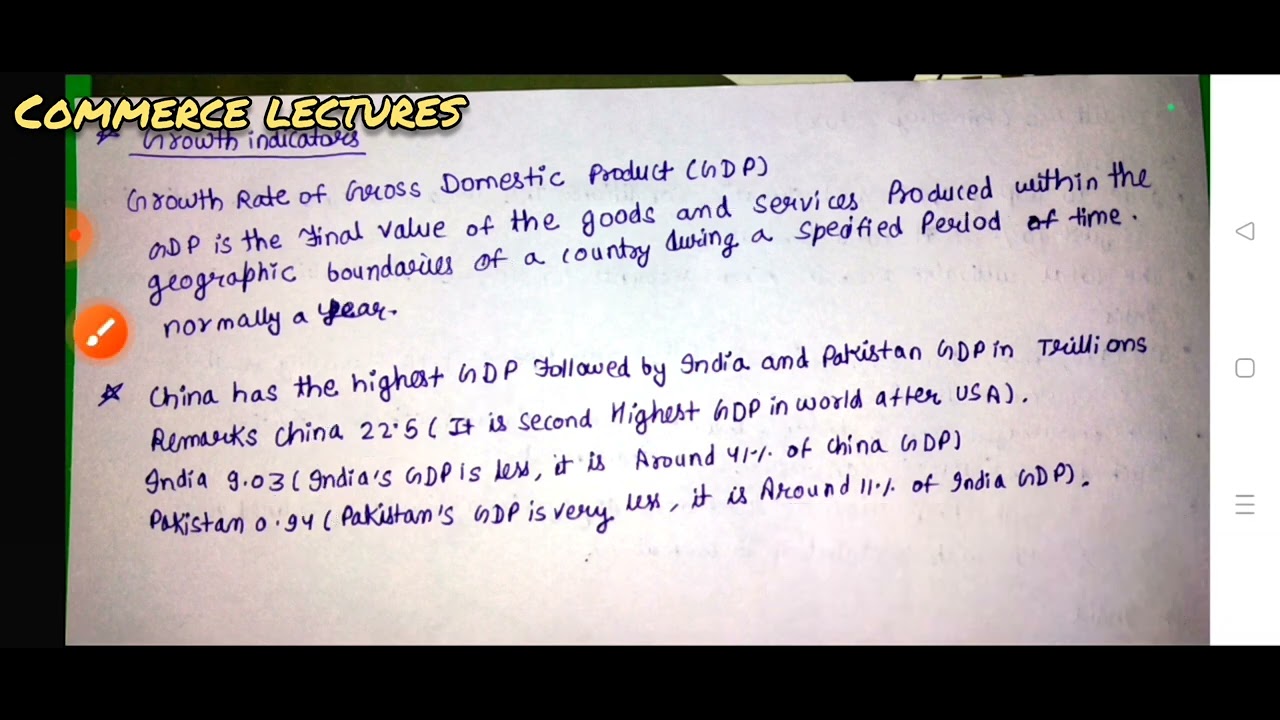 COMMERCE LECTURES
* Growth indicators
Growth Rate of Gross Domestic Product (GDP)
GDP is the final value of the goods and services Produced within the
geographic boundaries of a country during a specified Period of time.
normally a year.
* China has the highest GDP Followed by India and Pakistan GDP in Trillions
Remarks China 22.5 (It is second Highest GDP in world after USA).
India 9.03 (India's GDP is less, it is Around 41% of China GDP)
Pakistan 0.94 (Pakistan's GDP is very less, it is Around 11% of India GDP).